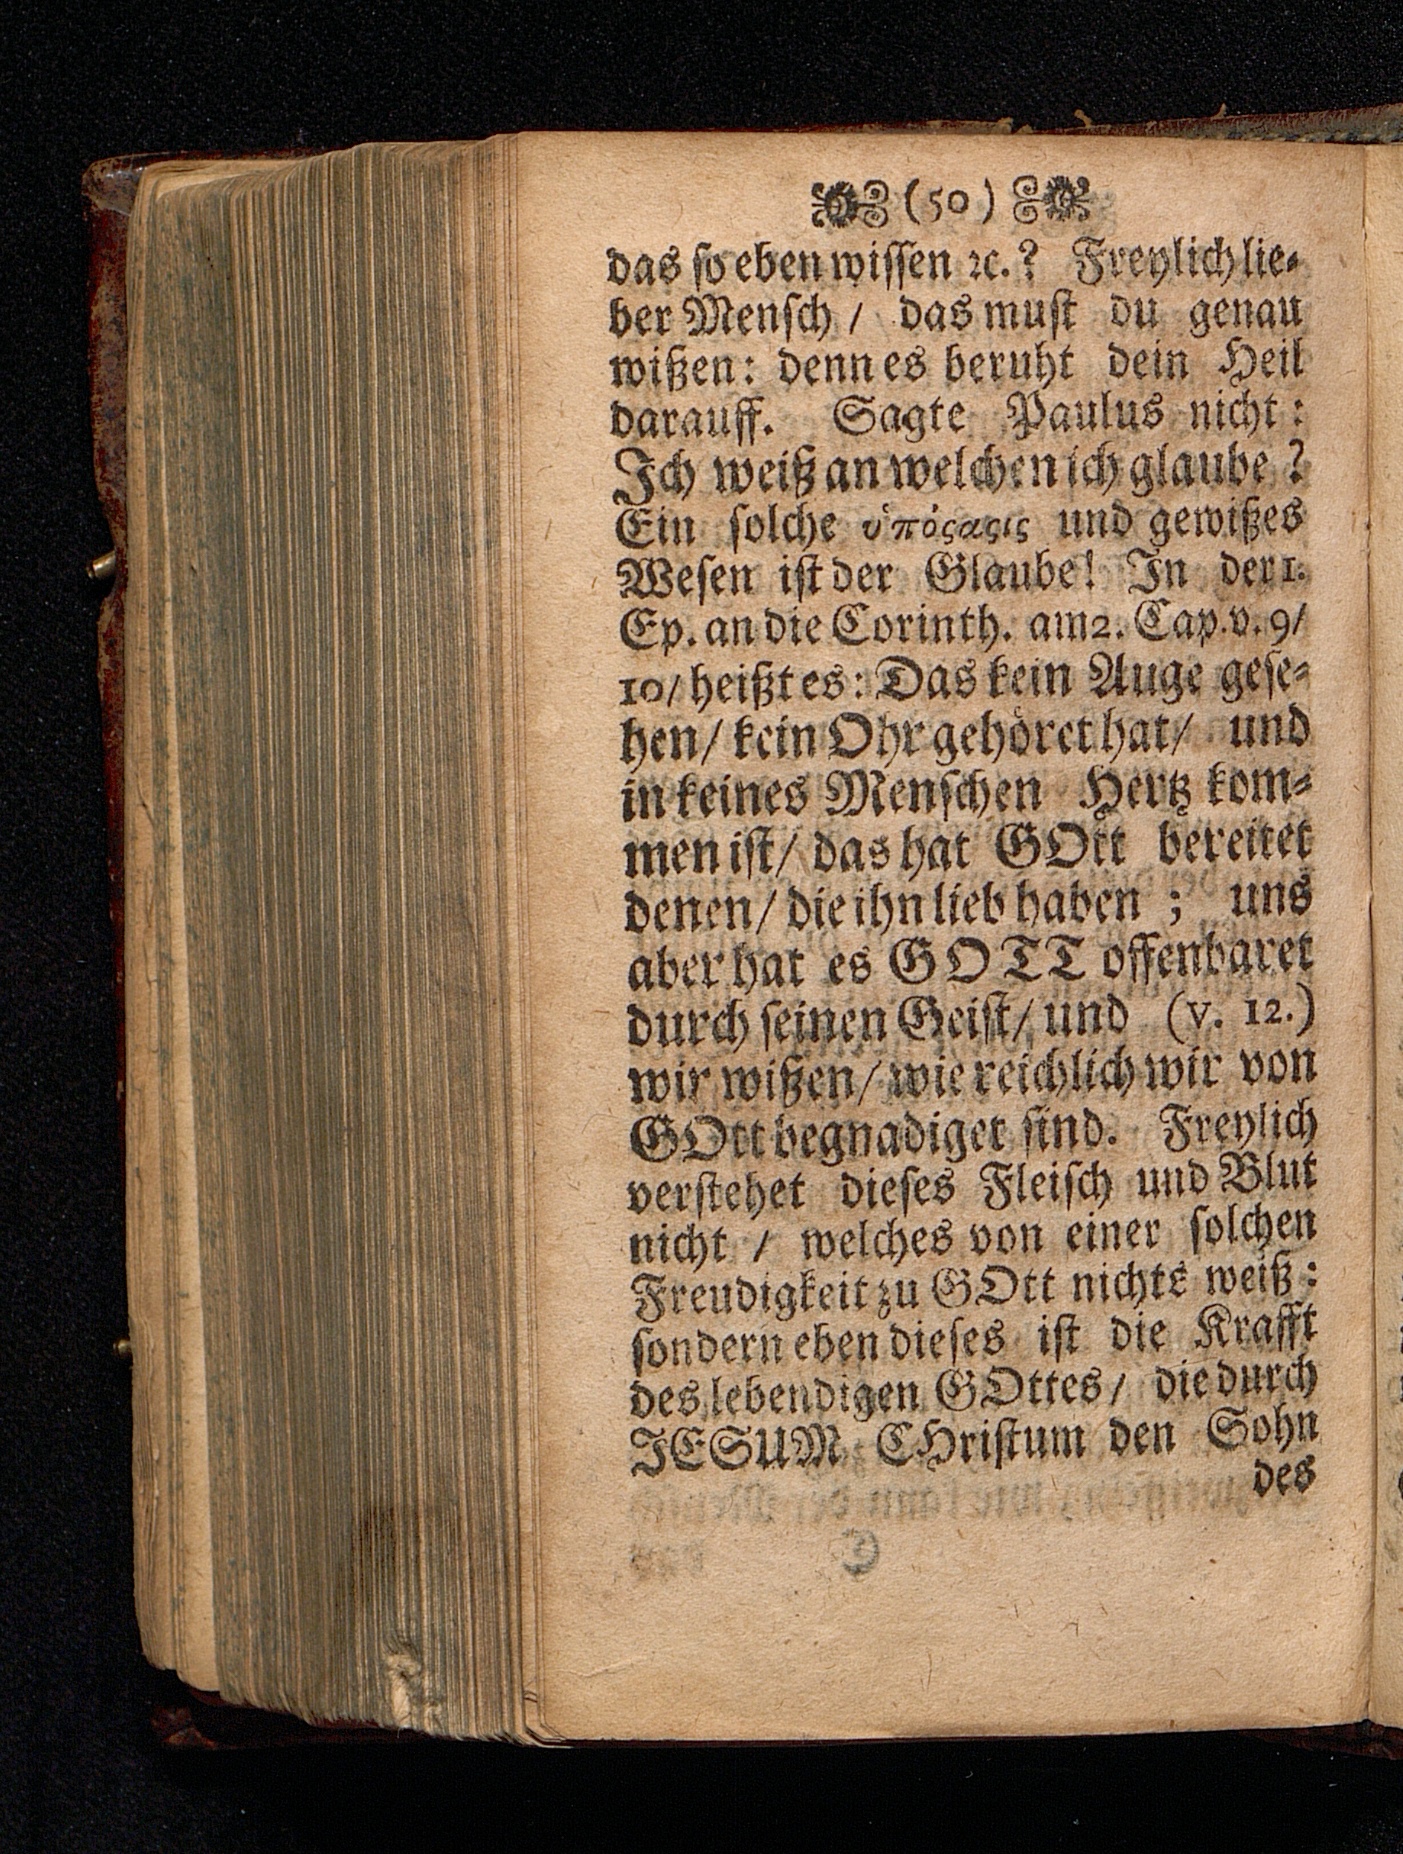 (50)
das so eben wissen ꝛc.? Freylich lie⸗
ber Mensch / das must du genau
wißen: denn es beruht dein Heil
darauff. Sagte Paulus nicht:
Ich weiß an welchen ich glaube?
Ein solche ὑπόςαςις und gewißes
Wesen ist der Glaube! In der 1.
Ep. an die Corinth. am 2. Cap. v. 9/
10/ heißt es: Das kein Auge gese⸗
hen/ kein Ohr gehöret hat/ und
in keines Menschen Hertz kom⸗
men ist/ das hat GOtt bereitet
denen/ die ihn lieb haben; uns
aber hat es GOTT offenbaret
durch seinen Geist/ und (v. 12.)
wir wißen/ wie reichlich wir von
GOtt begnadiget sind. Freylich
verstehet dieses Fleisch und Blut
nicht / welches von einer solchen
Freudigkeit zu GOtt nichts weiß:
sondern eben dieses ist die Krafft
des lebendigen GOttes/ die durch
JESUM CHristum den Sohn
des